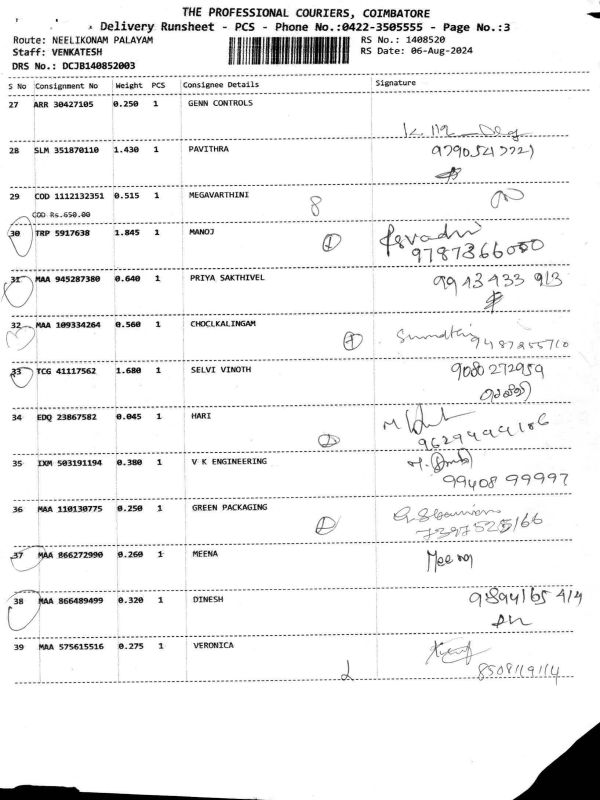 THE PROFESSIONAL COURIERS, COIMBATORE
Delivery Runsheet - PCS - Phone No.:0422-3505555 - Page No.:3
Route: NEELIKONAM PALAYAM RS No.: 1408520
Staff: VENKATESH RS Date: 06-Aug-2024
DRS No.: DCJB140852003
S No Consignment No Weight PCS Consignee Details Signature
27 ARR 30427105 0.250 1 GENN CONTROLS
28 SLM 351870110 1.430 1 PAVITHRA
29 COD 1112132351 0.515 1 MEGAVARTHINI 8
COD Rs.650.00
30 TRP 5917638 1.845 1 MANOJ
9787366000
31 MAA 945287380 0.640 1 PRIYA SAKTHIVEL 9943433 913
32 MAA 109334264 0.560 1 CHOCLKALINGAM
9487255710
33 TCG 41117562 1.680 1 SELVI VINOTH 9080272959
34 EDQ 23867582 0.045 1 HARI
35 IXM 503191194 0.380 1 V K ENGINEERING
99408 99997
36 MAA 110130775 0.250 1 GREEN PACKAGING
7397525166
37 MAA 866272990 0.260 1 MEENA Meena
38 MAA 866489499 0.320 1 DINESH 9894165 414
39 MAA 575615516 0.275 1 VERONICA
8508119114